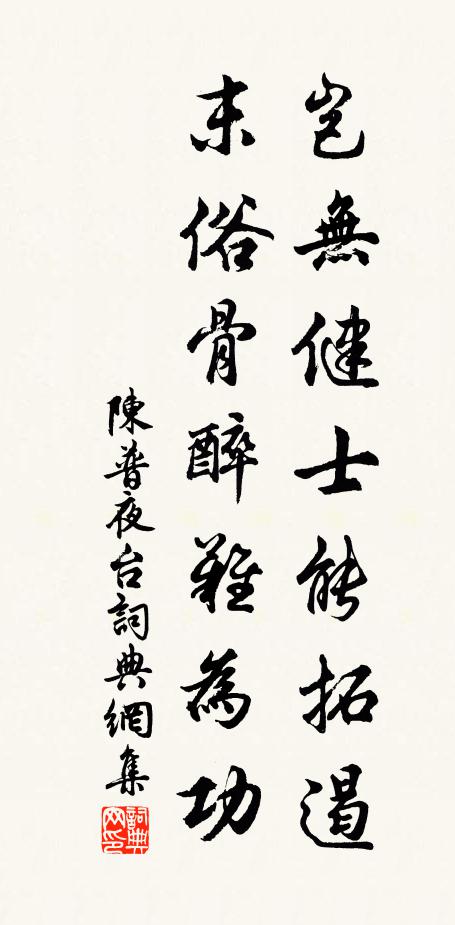 豈無健士能拓遏
末俗骨醉難為功
陳普夜台詞典網集
詞典网印